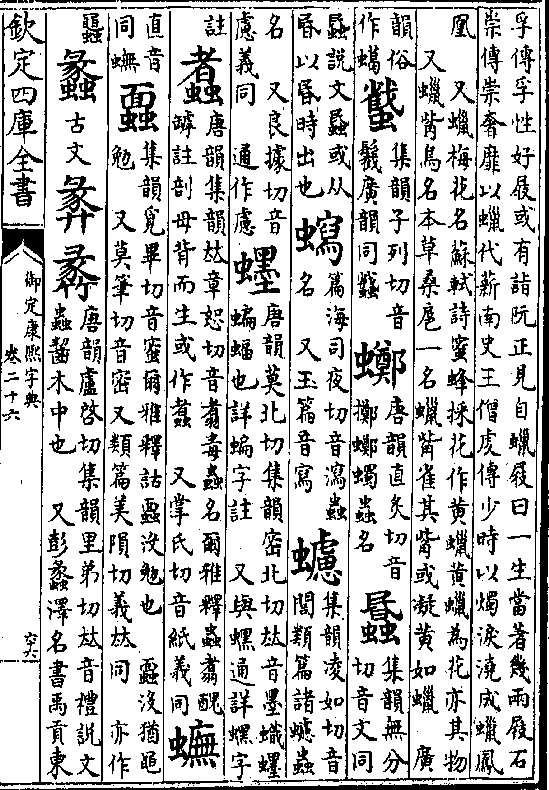 孚傳孚性好屐或有詣阮正見自蠟屐曰一生當著幾兩屐石
崇傳崇奢靡以蠟代薪南史王僧虔傳少時以燭淚澆成蠟鳳
凰　又蠟梅花名蘇軾詩蜜蜂採花作黄蠟黄蠟為花亦其物
又蠟觜鳥名本草桑扈一名蠟觜雀其觜或凝黄如蠟　廣
韻俗
作䗶
蠽
集韻子列切音
廣韻同
䗖
唐韻直炙切音
擲蠋蟲名
集韻無分
切音文同
蟁說文蟁或从
昬以昏時出也
篇海司夜切音瀉蟲
名　又玉篇音寫
集韻凌如切音
閭類篇諸蟲
名　又良據切音
慮義同　通作慮
蟔
唐韻莫北切集韻密北切𠀤音墨蟙蟔
蝙蝠也詳蝙字註　又與螺通詳螺字
註
唐韻集韻𠀤章恕切音翥毒蟲名爾雅釋蟲翥醜
罅註剖母背而生或作　又掌氏切音紙義同
蟱
直音
同蟱
蠠
集韻覓畢切音蜜爾雅釋詁蠠没勉也　蠠没猶黽
勉　又莫筆切音密又類篇美隕切義𠀤同　亦作
蠡
古文
唐韻盧啓切集韻里弟切𠀤音禮說文
蟲齧木中也　又彭蠡澤名書禹貢東
欽定四庫全書
御定康熙字典
卷二十六